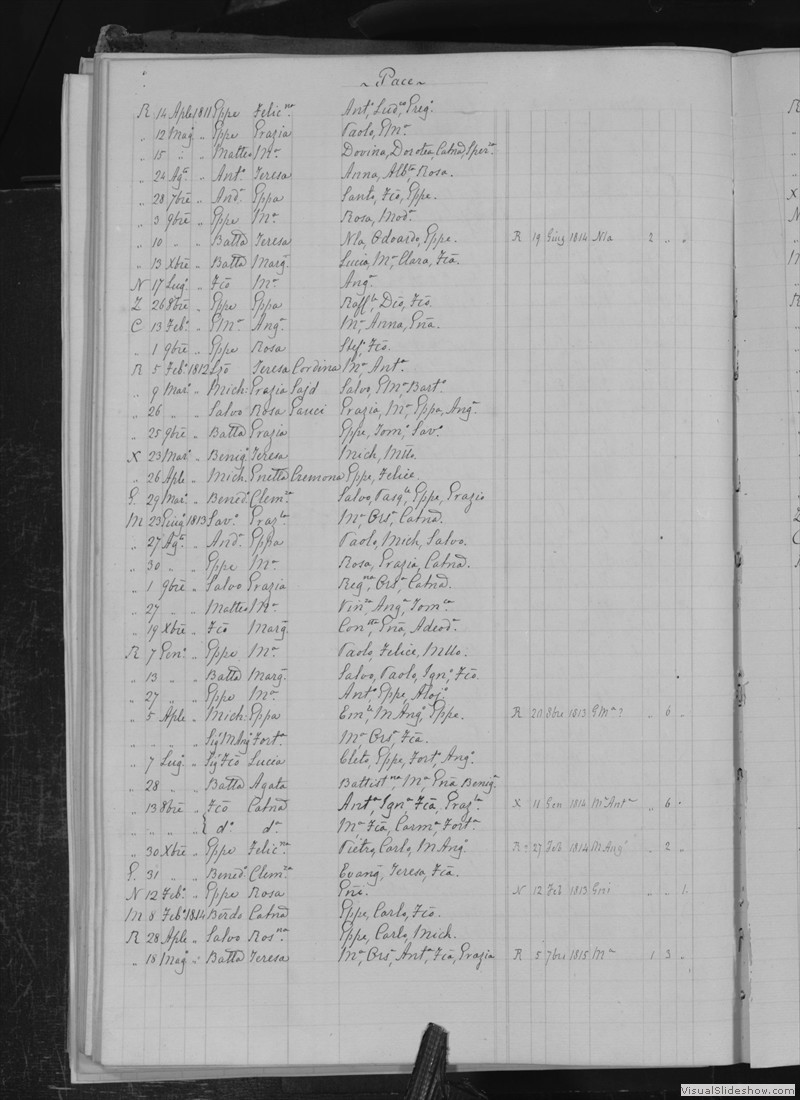 ~ Pace ~
R 14 Aple 1811 Gppe Felicna Anta, Ludca, Grego.
" 12 Mago " Gppe Grazia Paolo, GMa.
" 15 " " Matteo Ma. Dovina, Dorotea, Catna, Sperza.
" 24 Ago. " Anto. Teresa Anna, Albta, Rosa.
" 28 7bre " Anda. Gppa Santo, Fco, Gppe.
" 3 9bre " Gppe Ma. Rosa, Moda.
" 10 " " Batta Teresa Nla, Odoardo, Gppe. R 19 Giug 1814 Nla 2 " "
" 13 Xbre " Batta Marga. Lucia, Ma, Clara, Fca.
N 17 Lugo " Fco Ma. Anga.
Z 26 8bre " Gppe Gppa Raffla, Dco, Fco.
C 13 Febo. " GMa. Anga. Ma, Anna, Gna.
" 1 9bre " Gppe Rosa Stefo, Fco.
R 5 Febo 1812 Teresa Cordina Ma, Anta.
" 9 Maro. " Mich: Grazia Sajd Salvo, GMa, Barto.
" 26 " " Salvo Rosa Gauci Grazia, Ma, Gppa, Anga.
" 25 9bre " Batta Grazia Gppe, Tomo, Savo.
X 23 Maro. " Benigo Teresa Mich, Mtto.
" 26 Aple " Mich. Cremona Gppe, Felice.
G. 29 Maro. " Benedo. Clemza. Salvo, Pasqle, Gppe, Grazio
M 23 Giugo 1813 Savo. Grazla Ma, Orsa, Catna.
" 27 Ago. " Anda. Gppa Paolo, Mich, Salvo.
" 30 " " Gppe Ma. Rosa, Grazia, Catna.
" 1 9bre " Salvo Grazia Regna, Orsa, Catna.
" 27 " " Matteo Ma. Vinza, Anga, Tomca
" 19 Xbre " Fco Marga. Contta, Gna, Adeoda.
R 7 Geno. " Gppe Ma. Paolo, Felice, Mtto.
" 13 " " Batta Marga. Salvo, Paolo, Igno, Fco.
" 27 " " Gppe Ma. Anto, Gppe, Aloja.
" 5 Aple " Mich: Gppa Emla, M Anga, Gppe. R 20 8bre 1813 GMa? " 6 "
" " " " Sigr M Ango Forta. Ma, Orsa, Fca.
" 7 Lugo " Sigr Fco Lucia Cleto, Gppe, Forta, Anga.
" 28 " " Batta Agata Battistna, Ma, Gna Beniga.
" 13 8bre " Fco Catna Anta, Igna, Fca, Grazla. X 11 Gen 1814 Ma Anta " 6 "
" " " " { do. da. Ma Fca, Carma, Forta.
" 30 Xbre " Gppe Felicna Pietro, Carlo, M Anga. R? 27 Feb 1814 M Anga " 2 "
G. 31 " " Benedo. Clemza Evanga, Teresa, Fca.
N 12 Febo. " Gppe Rosa Gni. N 12 Feb 1813 Gni " " 1.
M 8 Febo. 1814 Berdo Catna Gppe, Carlo, Fco.
R 28 Aple " Salvo Rosna. Gppe, Carlo, Mich.
" 18 Mago " Batta Teresa Ma, Orsa, Anta, Fca, Grazia R 5 7bre 1815 Ma 1 3 "
VisualSlideshow.com